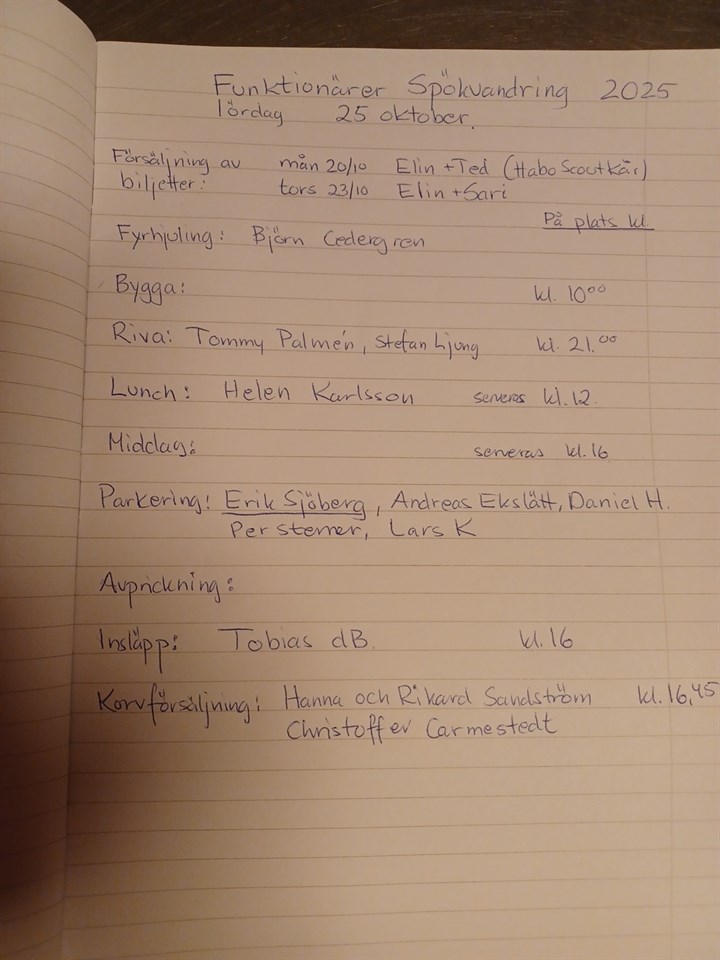 Funktionärer Spökvandring 2025
lördag 25 oktober.
Försäljning av mån 20/10 Elin + Ted (Habo Scoutkår)
biljetter: tors 23/10 Elin + Sari
På plats kl.
Fyrhjuling: Björn Cedergren
Bygga: kl. 10⁰⁰
Riva: Tommy Palmén, Stefan Ljung kl. 21.⁰⁰
Lunch: Helen Karlsson serveras kl. 12.
Middag: serveras kl. 16
Parkering: Erik Sjöberg, Andreas Ekslätt, Daniel H.
Per Sterner, Lars K
Avprickning:
Insläpp: Tobias dB. kl. 16
Korvförsäljning: Hanna och Rikard Sandström kl. 16,45
Christoffer Carmestedt